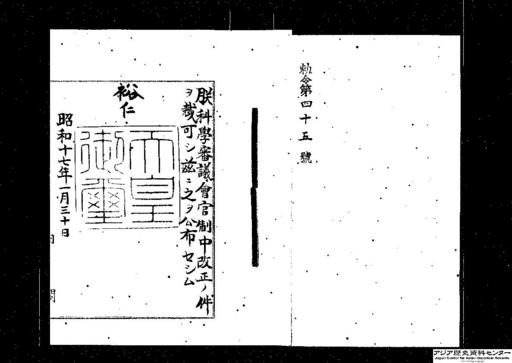 勅令第四十五號
朕科學審議會官制中改正ノ件
ヲ裁可シ茲ニ之ヲ公布セシム
裕仁
天皇御璽
昭和十七年一月三十日
アジア歴史資料センター
Japan Center for Asian Historical Records